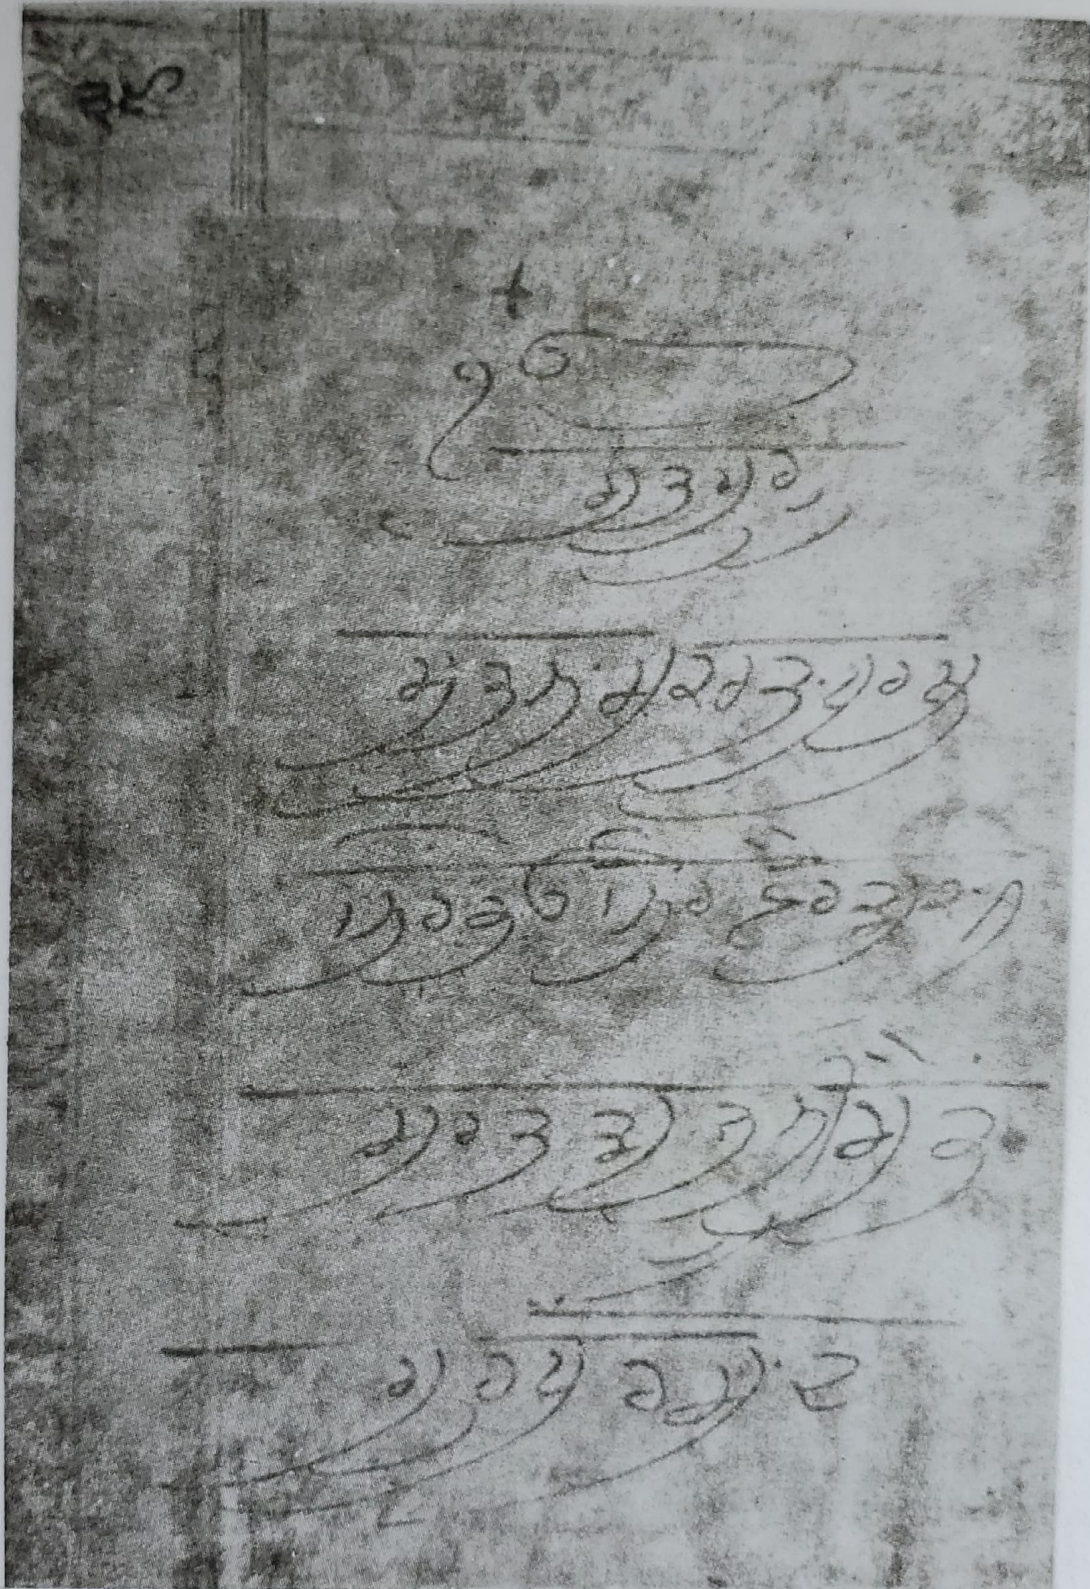 ੴ
ਸਤਗੁਰੂ
ਸਤਨਾਮੁ ਕਰਤਾ ਪੁਰਖੁ
ਨਿਰਭਉ ਨਿਰਵੈਰ ਅਕਾਲ
ਮੂਰਤ ਅਜੂਨੀ ਸੈਭੰ
ਗੁਰ ਪਰਸਾਦ